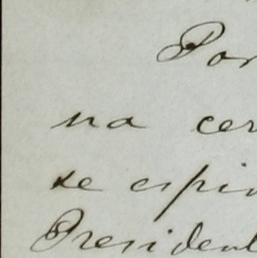 Por
na cer
se espi
President